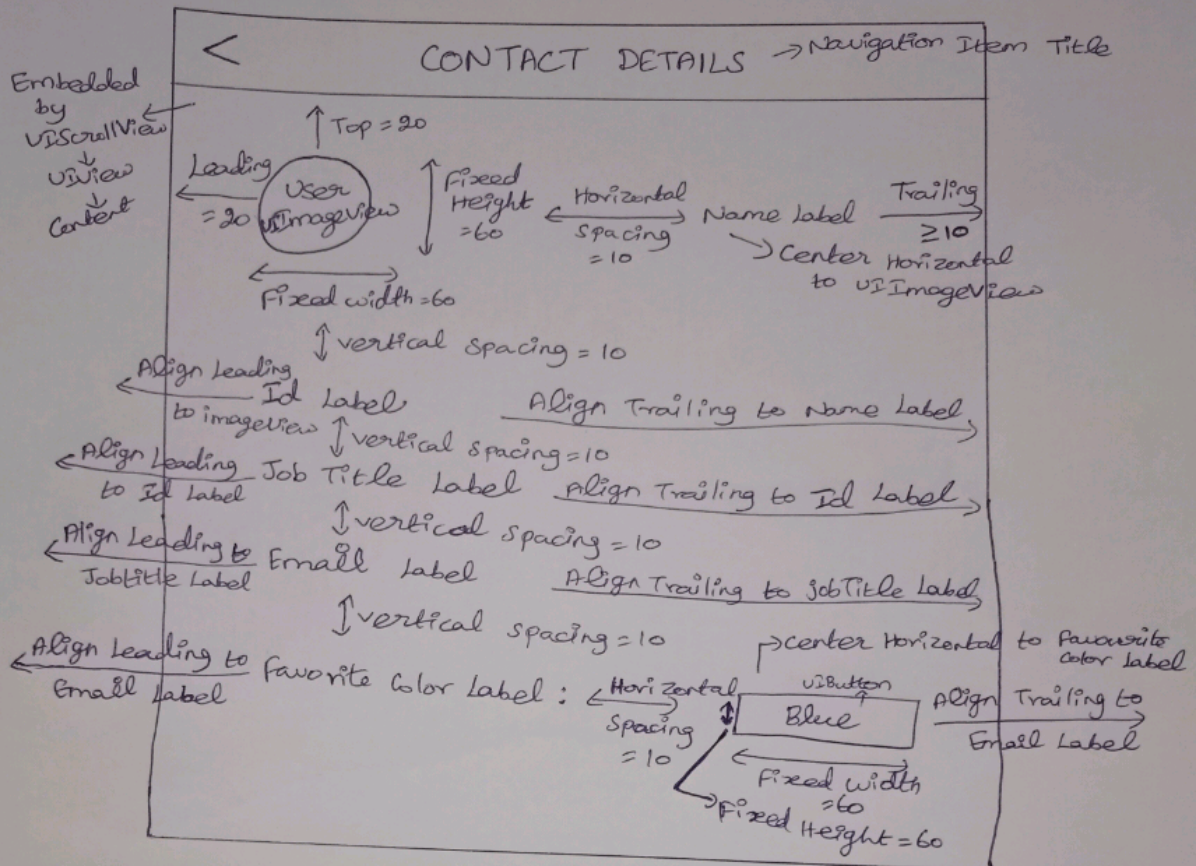 <
CONTACT DETAILS → Navigation Item Title
Embedded
by
UIScrollView
↓
UIView
↓
Content
Top = 20
Leading
= 20
User
UIImageView
Fixed
Height
= 60
Horizontal
Spacing
= 10
Name Label
Trailing
≥10
Center Horizontal
to UIImageView
Fixed width = 60
vertical spacing = 10
Align Leading
to imageview
Id Label
Align Trailing to Name Label
vertical spacing = 10
Align Leading
to Id Label
Job Title Label
Align Trailing to Id Label
vertical spacing = 10
Align Leading to
Jobtitle Label
Email Label
Align Trailing to jobTitle Label
vertical spacing = 10
Align Leading to
Email Label
Favorite Color Label :
Horizontal
Spacing
= 10
center Horizontal to Favourite
Color Label
UIButton
Blue
Align Trailing to
Email Label
Fixed width
= 60
Fixed Height = 60